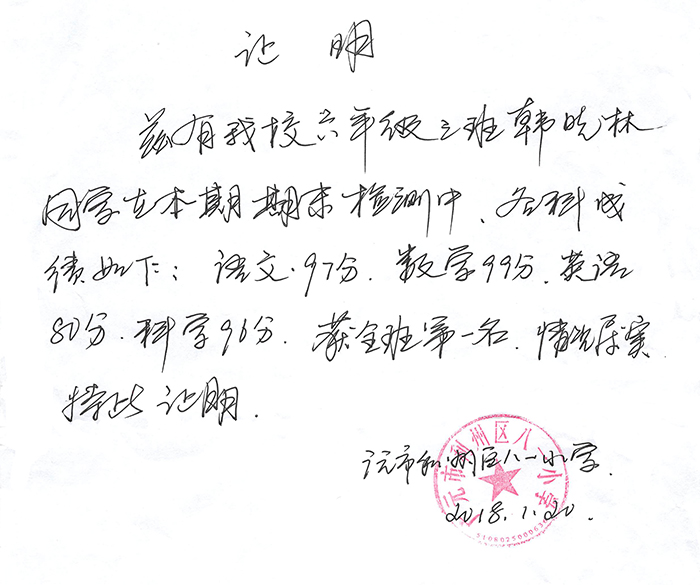 证 明
兹有我校六年级三班韩晓林
同学在本期期末检测中、各科成
绩如下:语文.97分.数学99分.英语
80分.科学96分.获全班第一名.情况属实
特此证明.
广元市利州区八一小学.
2018.1.20.
广元市利州区八一小学